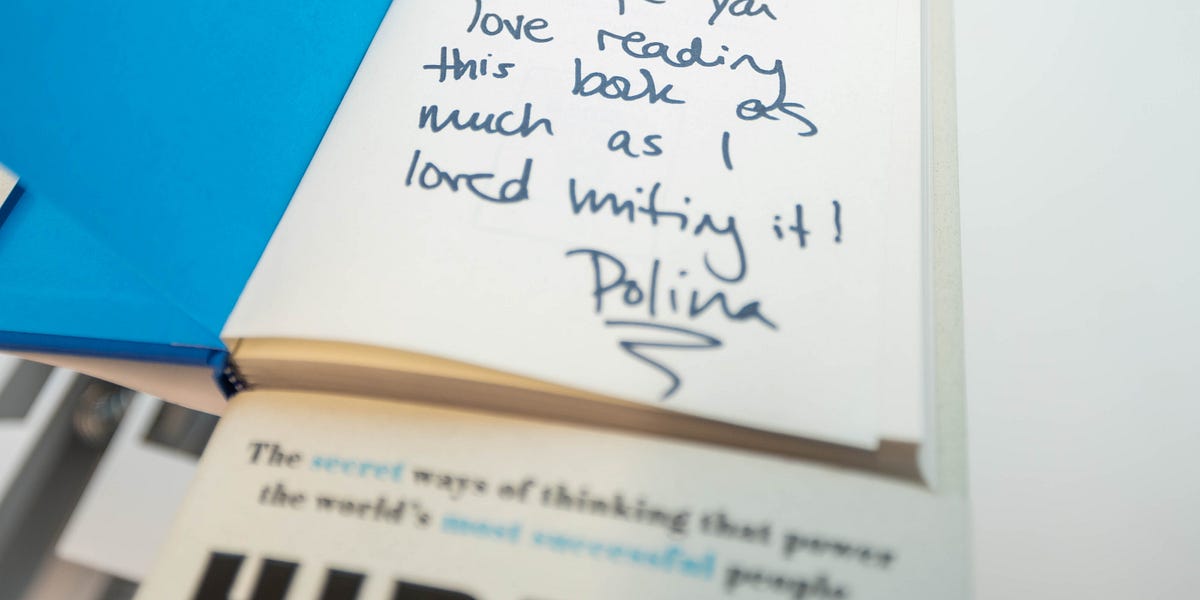 you
love reading
this book as
much as I
loved writing it!
Polina
The secret ways of thinking that power
the world's most successful people